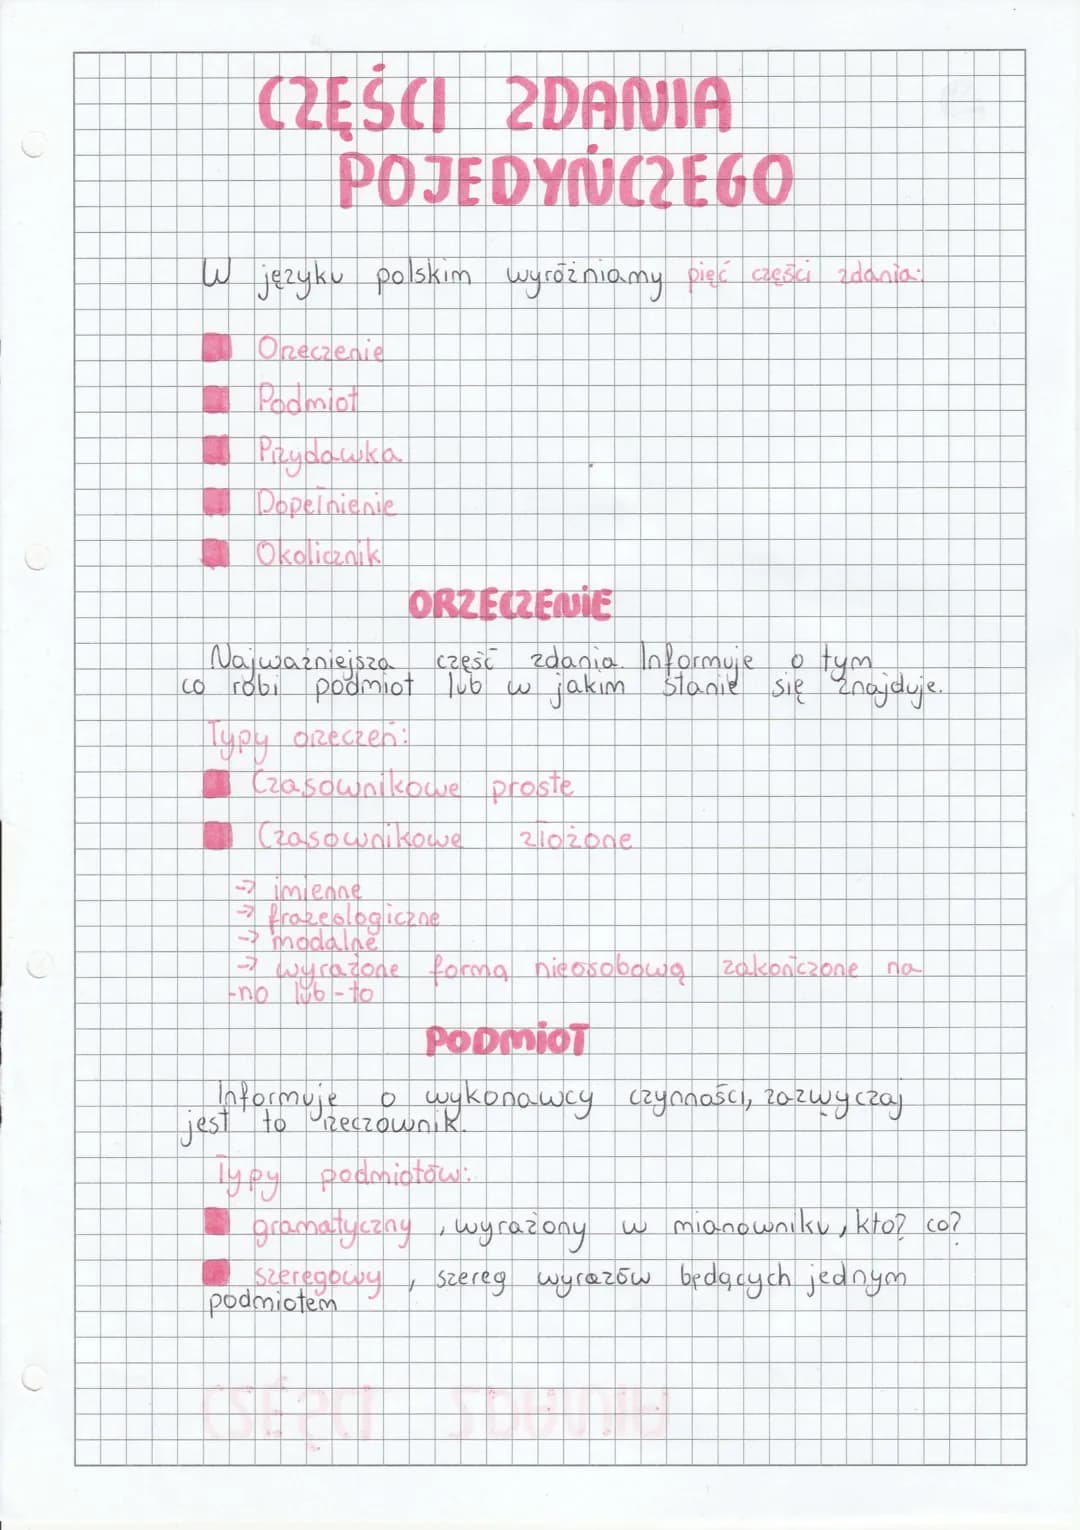 CZĘŚCI ZDANIA
POJEDYŃCZEGO
W języku polskim wyróżniamy pięć części zdania:
Orzeczenie
Podmiot
Przydawka
Dopełnienie
Okolicznik
ORZECZENIE
Najważniejsza część zdania. Informuje o tym
co robi podmiot lub w jakim stanie się znajduje.
Typy orzeczeń:
Czasownikowe proste
Czasownikowe złożone
→ imienne
→ frazeologiczne
→ modalne
→ wyrażone formą nieosobową zakończone na
-no lub -to
PODMIOT
Informuje o wykonawcy czynności, zazwyczaj
jest to rzeczownik.
Typy podmiotów:
gramatyczny, wyrażony w mianowniku, kto? co?
szeregowy, szereg wyrazów będących jednym
podmiotem